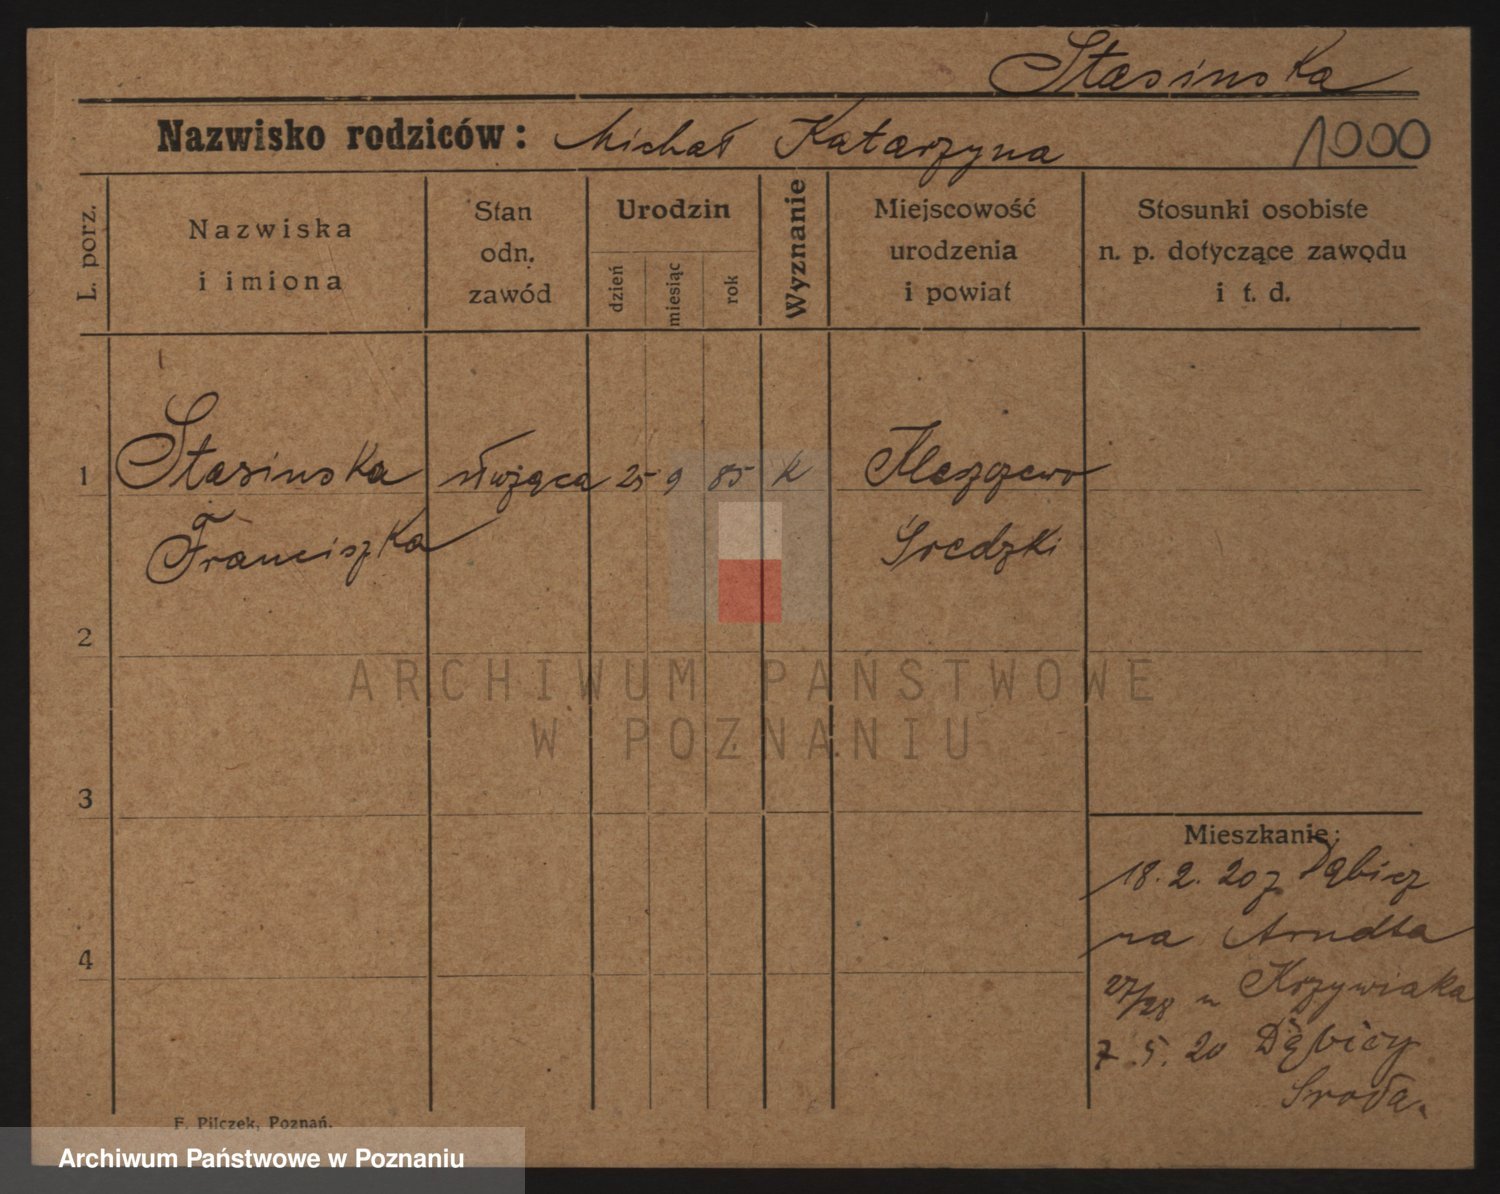 Stasinska
Nazwisko rodziców: Michał Katarzyna 1000
L. porz.
Nazwiska
i imiona
Stan
odn.
zawód
Urodzin
dzień
miesiąc
rok
Wyznanie
Miejscowość
urodzenia
i powiat
Stosunki osobiste
n. p. dotyczące zawodu
i t. d.
1 Stasinska służąca 25 9 85 k Kleszczewo
Franciszka Sredzki
2
ARCHIWUM PAŃSTWOWE
W POZNANIU
3
Mieszkanie:
18. 2. 20 z Dąbicz
na Arndta
4
27/28 u Krzywiaka
7. 5. 20 Dąbicz
Sroda.
F. Pilczek, Poznań.
Archiwum Państwowe w Poznaniu